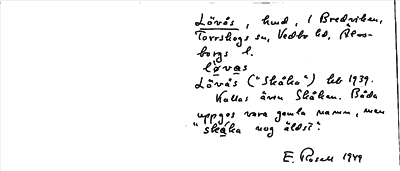 Lövås, hmd, i Bredviken,
Torrskogs sn, Vedbo hd, Älvs-
borgs l.
løvas
Lövås ("Skåka") hb 1939.
Kallas även Skåkan. Båda
uppges vara gamla namn, men
"skåka nog äldst".
E. Rosell 1949